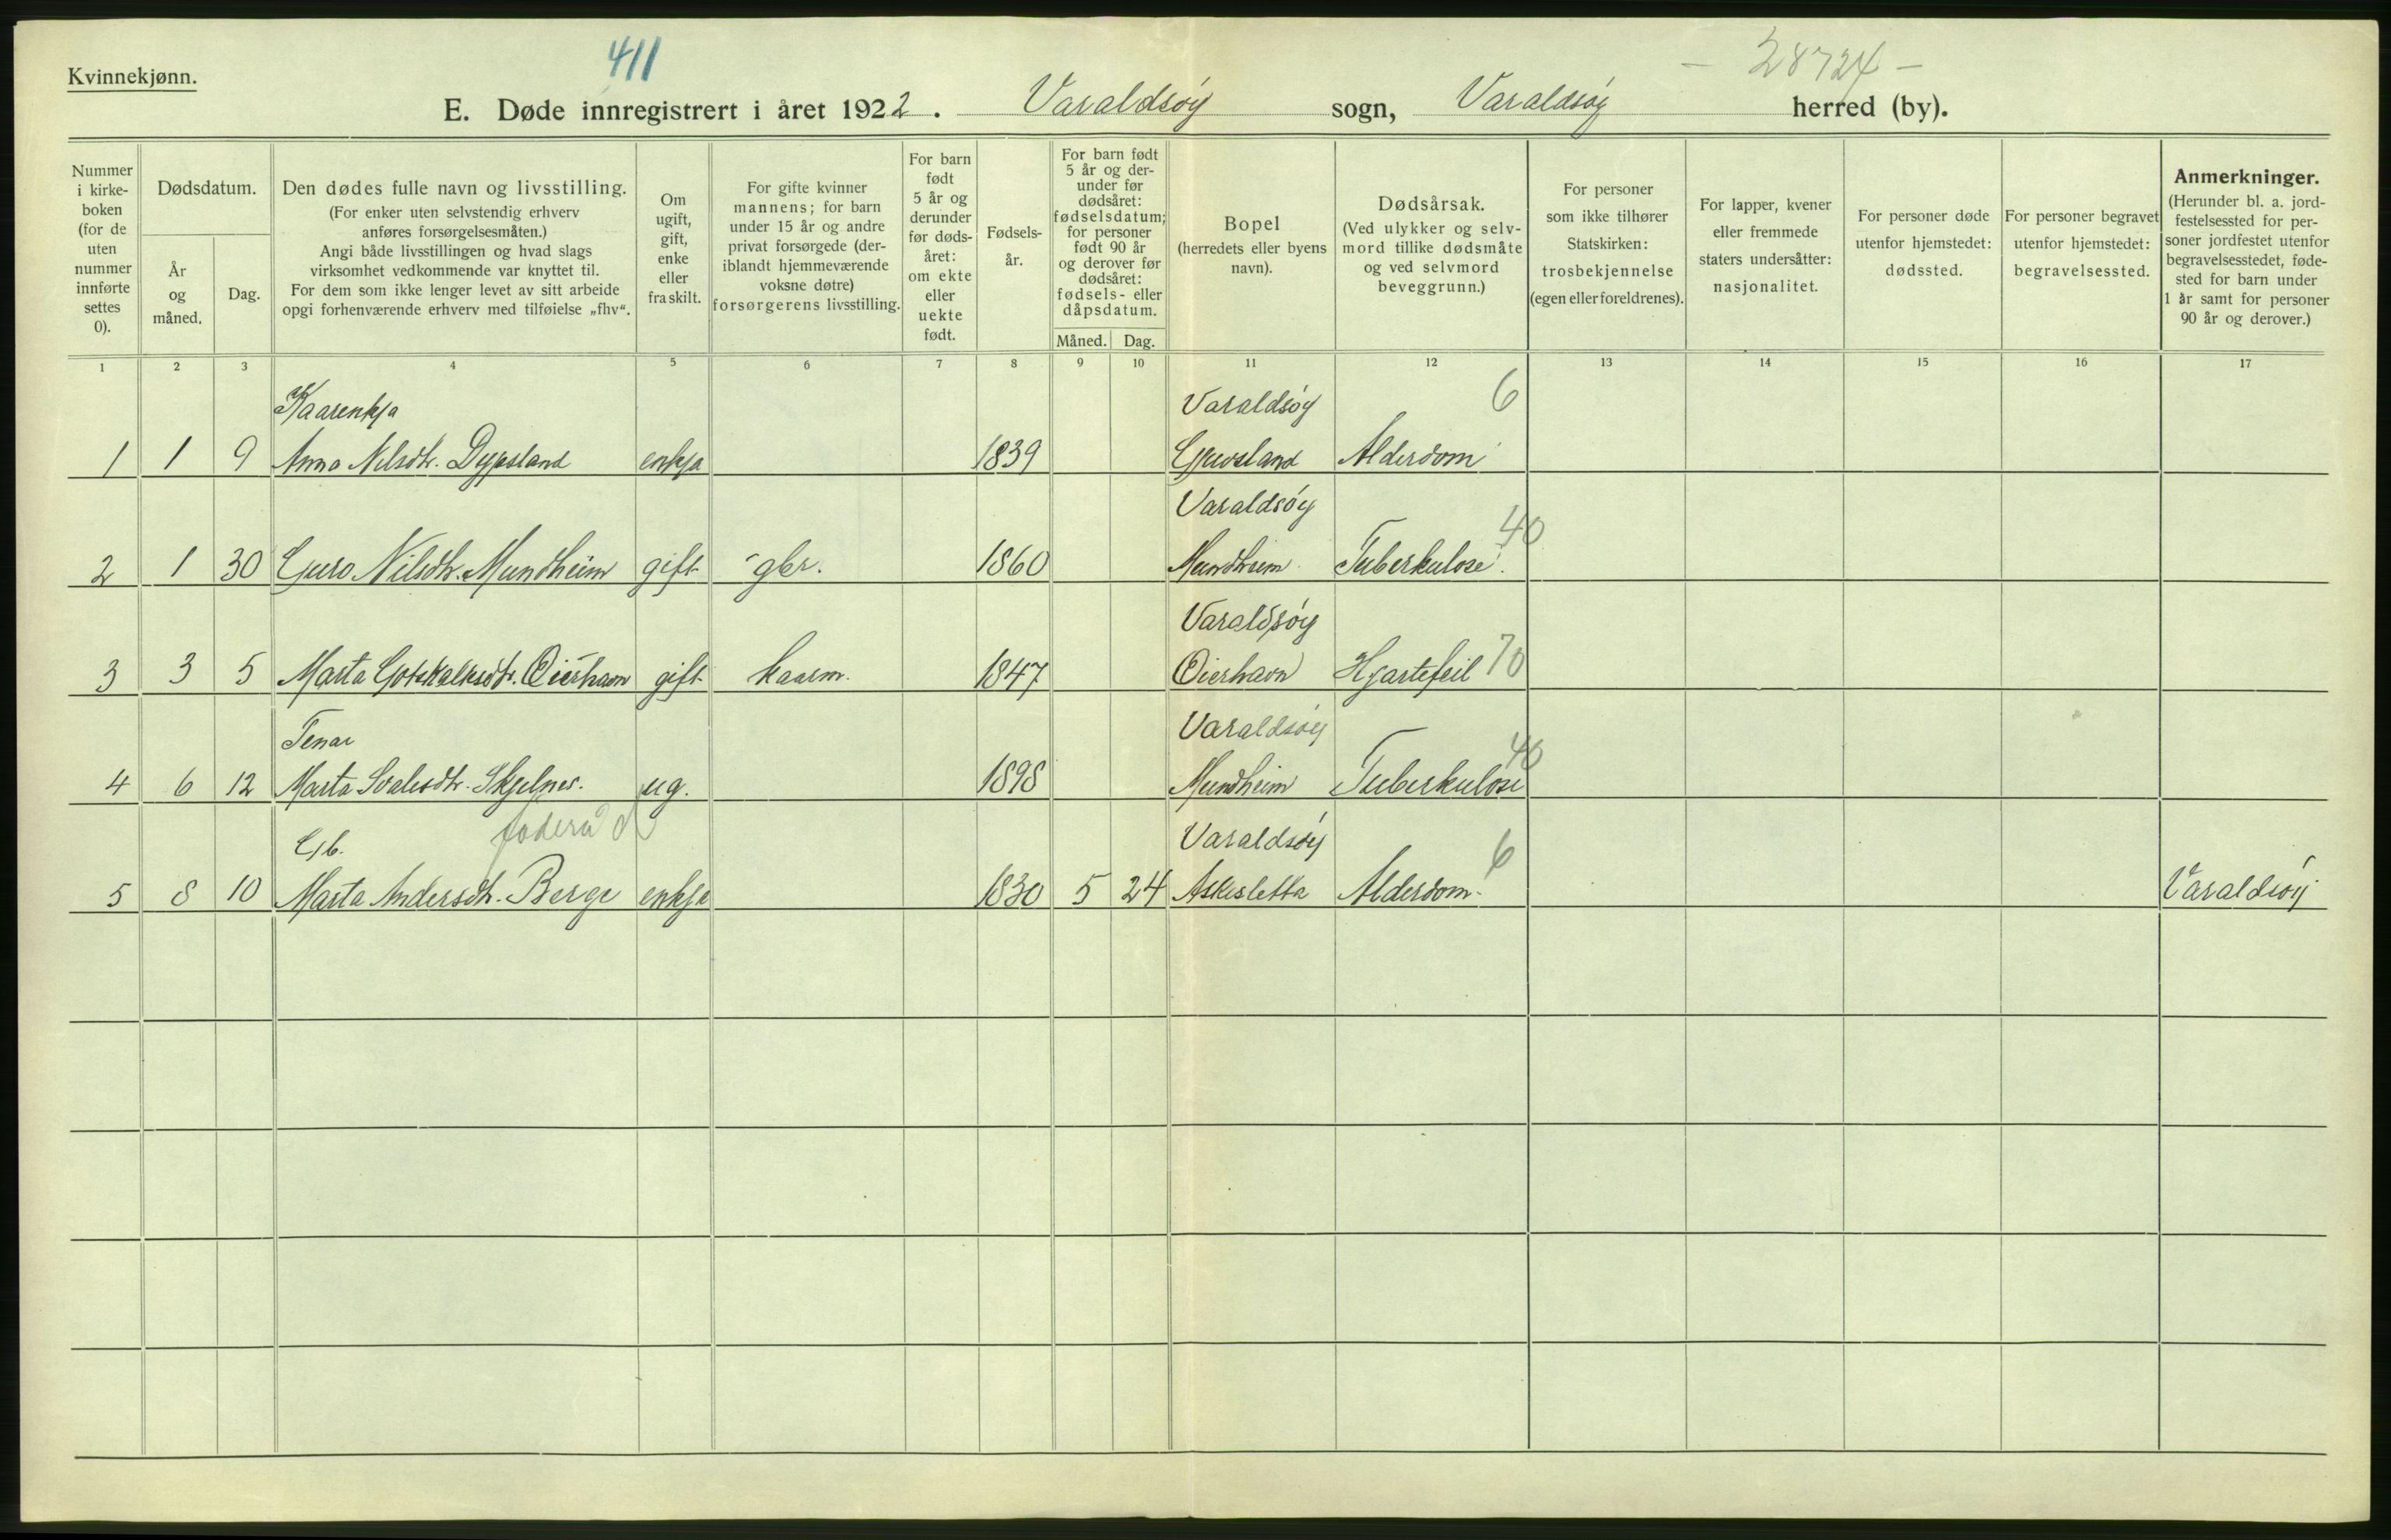 411
- 28724 -
Kvinnekjønn.
E. Døde innregistrert i året 1922. Varaldsøy sogn, Varaldsøy herred (by).
Nummer i kirke-boken (for de uten nummer innførte settes 0).
Dødsdatum.
År og måned.
Dag.
Den dødes fulle navn og livsstilling.
(For enker uten selvstendig erhverv
anføres forsørgelsesmåten.)
Angi både livsstillingen og hvad slags
virksomhet vedkommende var knyttet til.
For dem som ikke lenger levet av sitt arbeide
opgi forhenværende erhverv med tilføielse „fhv“.
Om ugift, gift, enke eller fraskilt.
For gifte kvinner
mannens; for barn
under 15 år og andre
privat forsørgede (der-
iblandt hjemmeværende
voksne døtre)
forsørgerens livsstilling.
For barn født 5 år og derunder før døds-året: om ekte eller uekte født.
Fødsels-år.
For barn født
5 år og der-
under før
dødsåret:
fødselsdatum;
for personer
født 90 år
og derover før
dødsåret:
fødsels- eller
dåpsdatum.
Måned. Dag.
Bopel
(herredets eller byens
navn).
Dødsårsak.
(Ved ulykker og selv-
mord tillike dødsmåte
og ved selvmord
beveggrunn.)
For personer
som ikke tilhører
Statskirken:
trosbekjennelse
(egen eller foreldrenes).
For lapper, kvener
eller fremmede
staters undersåtter:
nasjonalitet.
For personer døde
utenfor hjemstedet:
dødssted.
For personer begravet
utenfor hjemstedet:
begravelsessted.
Anmerkninger.
(Herunder bl. a. jord-
festelsessted for per-
soner jordfestet utenfor
begravelsesstedet, føde-
sted for barn under
1 år samt for personer
90 år og derover.)
1 2 3 4 5 6 7 8 9 10 11 12 13 14 15 16 17
Kaarenkja Varaldsøy 6
1 1 9 Anna Nilsdtr. Dypsland enkja 1839 Gjuvsland Alderdom
Varaldsøy 40
2 1 30 Guro Nilsdtr. Mundheim gift gbr. 1860 Mundheim Tuberkulose.
Varaldsøy
3 3 5 Marta Gotskalksdtr. Øierhavn gift kaarm. 1847 Øierhavn Hjartefeil 70
Tenar Varaldsøy 40
4 6 12 Marta Svalesdtr. Skjelnes. ug. 1898 Mundheim Tuberkulose
Gb. Varaldsøy 6
5 8 10 Marta Andersdtr. Berge enkja 1830 5 24 Askesletta Alderdom. Varaldsøy